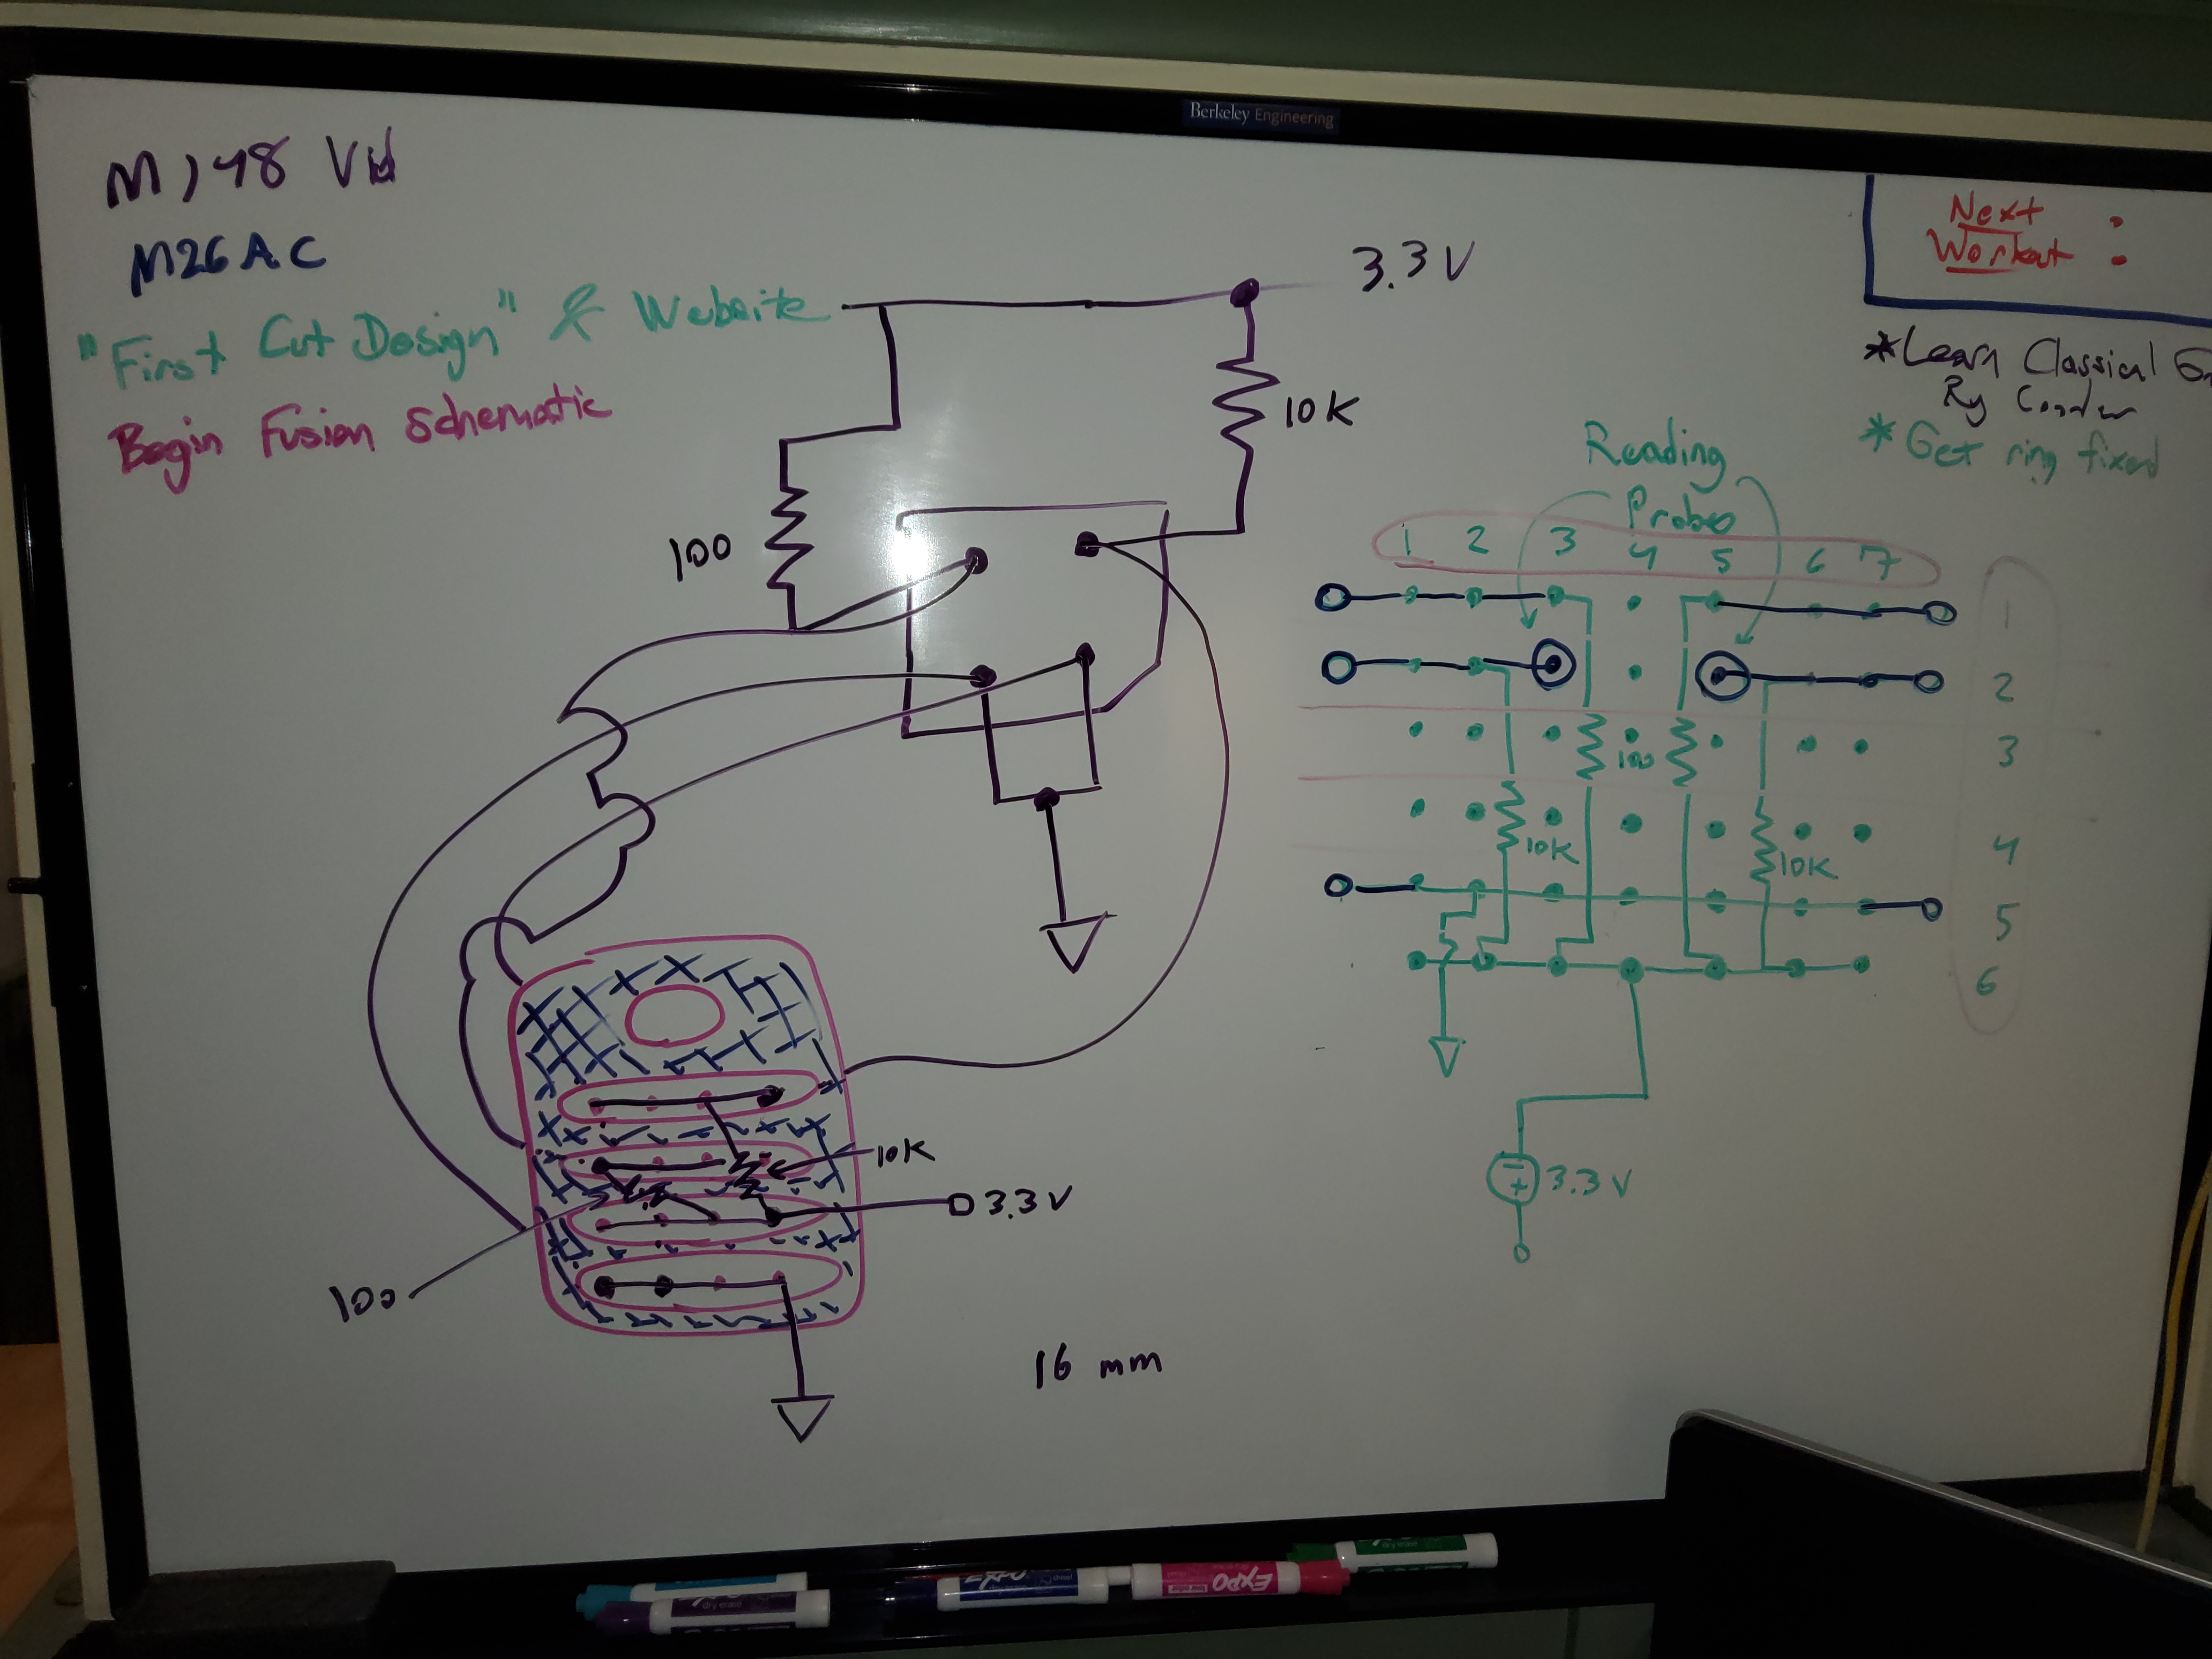 Berkeley Engineering
M148 Vid
M26AC
"First Cut Design" & Website
Begin Fusion Schematic
3.3V
10K
100
10K
3.3V
100
16 mm
Next
Workout :
*Learn Classical
Ry Cooder
*Get ring fixed
Reading
Probe
1 2 3 4 5 6 7
1
2
3
4
5
6
100
10K
10K
3.3V
dry erase
dry erase
EXPO
EXPO
dry erase